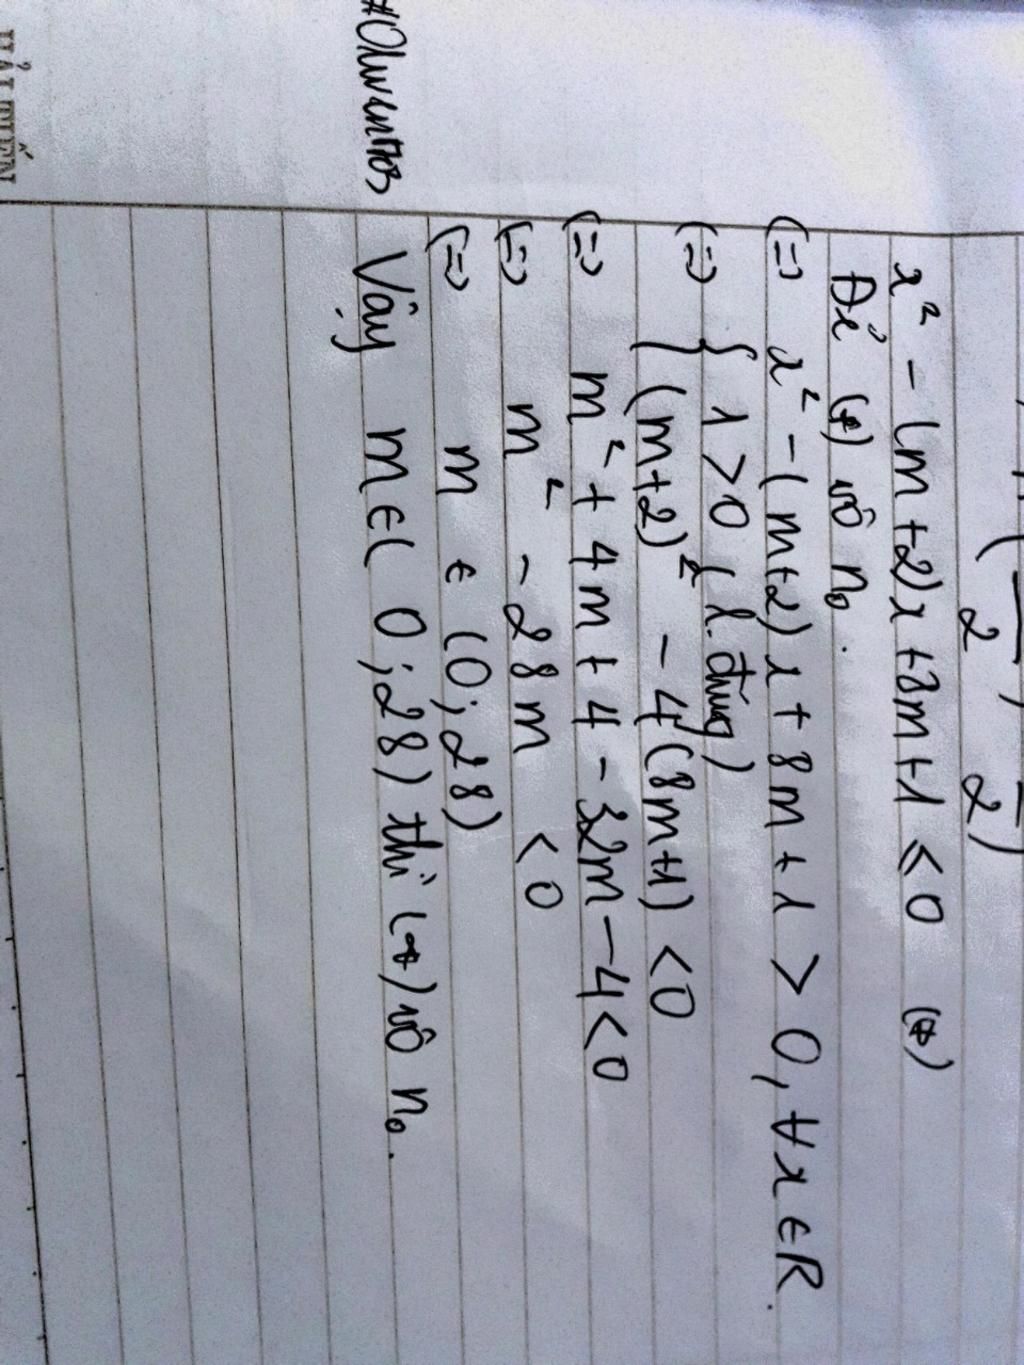 x² - (m+2)x + 8m+1 ≤ 0 (*)
Để (*) vô n₀.
(=) x² - (m+2)x + 8m + 1 > 0, ∀x ∈ R.
(=) { 1 > 0 (l.đúng)
(m+2)² - 4(8m+1) < 0
(=) m² + 4m + 4 - 32m - 4 < 0
(=) m² - 28m < 0
(=) m ∈ (0; 28)
Vậy m ∈ (0; 28) thì (*) vô n₀.
HẢI TIẾN